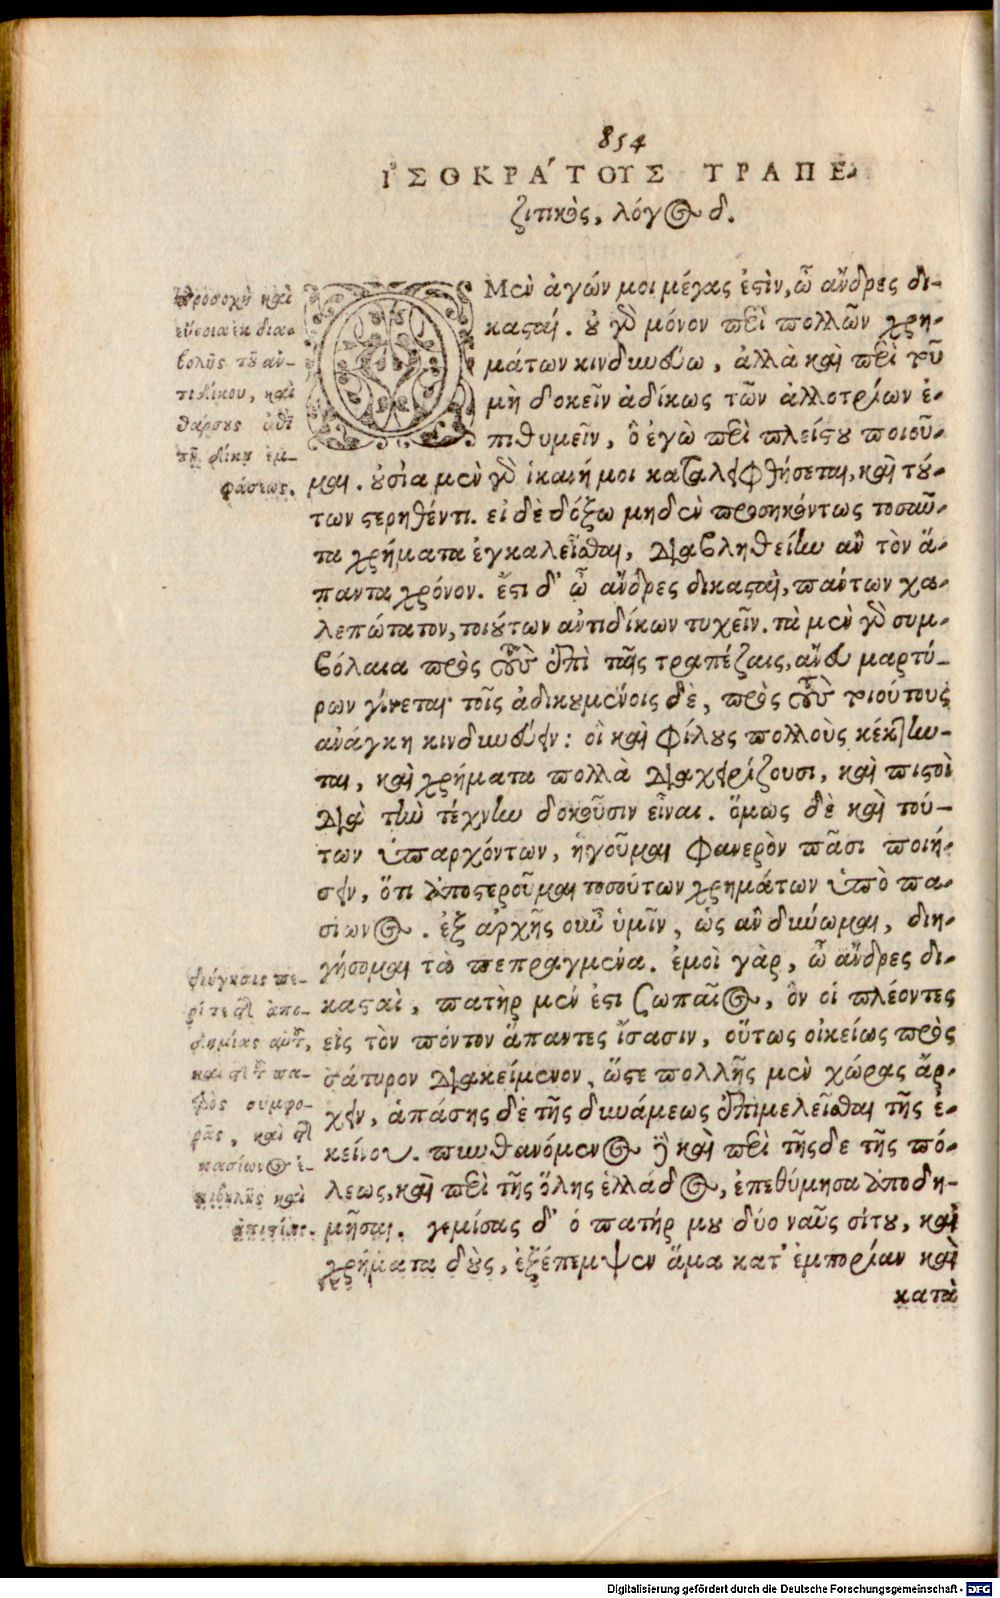 854
ἸΣΟΚΡΆΤΟΥΣ ΤΡΑΠΕ-
ζιτικὸς, λόγος δ.
προσοχὴ καὶ
εὔνοια ἐκ δια-
βολῆς τοῦ ἀν-
τιδίκου, καὶ
θάρσους ἐπὶ
τῇ δίκῃ ἐμ-
φάσεως.
Ὁ Μὲν ἀγών μοι μέγας ἐστὶν, ὦ ἄνδρες δι-
κασταί. οὐ γὰρ μόνον περὶ πολλῶν χρη-
μάτων κινδυνεύω, ἀλλὰ καὶ περὶ τοῦ
μὴ δοκεῖν ἀδίκως τῶν ἀλλοτρίων ἐ-
πιθυμεῖν, ὃ ἐγὼ περὶ πλείστου ποιοῦ-
μαι. οὐσία μὲν γὰρ ἱκανή μοι καταλειφθήσεται, καὶ τού-
των στερηθέντι. εἰ δὲ δόξω μηδὲν προσηκόντως τοσαῦ-
τα χρήματα ἐγκαλεῖσθαι, διαβληθείην ἂν τὸν ἅ-
παντα χρόνον. ἔστι δ' ὦ ἄνδρες δικασταὶ, πάντων χα-
λεπώτατον, τοιούτων ἀντιδίκων τυχεῖν. τὰ μὲν γὰρ συμ-
βόλαια πρὸς τοὺς ἐπὶ ταῖς τραπέζαις, ἄνευ μαρτύ-
ρων γίνεται τοῖς ἀδικουμένοις δὲ, πρὸς τοὺς τοιούτους
ἀνάγκη κινδυνεύειν: οἳ καὶ φίλους πολλοὺς κέκτην-
ται, καὶ χρήματα πολλὰ διαχειρίζουσι, καὶ πιστοὶ
διὰ τὴν τέχνην δοκοῦσιν εἶναι. ὅμως δὲ καὶ τού-
των ὑπαρχόντων, ἡγοῦμαι φανερὸν πᾶσι ποιή-
σειν, ὅτι ἀποστεροῦμαι τοσούτων χρημάτων ὑπὸ πα-
σίωνος. ἐξ ἀρχῆς οὖν ὑμῖν, ὡς ἂν δύνωμαι, διη-
γήσομαι τὰ πεπραγμένα. ἐμοὶ γὰρ, ὦ ἄνδρες δι-
κασταὶ, πατὴρ μέν ἐστι Σωπαῖος, ὃν οἱ πλέοντες
εἰς τὸν πόντον ἅπαντες ἴσασιν, οὕτως οἰκείως πρὸς
σάτυρον διακείμενον, ὥστε πολλῆς μὲν χώρας ἄρ-
χειν, ἁπάσης δὲ τῆς δυνάμεως ἐπιμελεῖσθαι τῆς ἐ-
κείνου. πυνθανόμενος δὲ καὶ περὶ τῆσδε τῆς πό-
λεως, καὶ περὶ τῆς ὅλης ἑλλάδος, ἐπεθύμησα ἀποδη-
μῆσαι. γεμίσας δ' ὁ πατήρ μου δύο ναῦς σίτου, καὶ
χρήματα δοὺς, ἐξέπεμψεν ἅμα κατ' ἐμπορίαν καὶ
διήγησις πε-
ρί τε τῆς ἀπο-
δημίας αὐτοῦ,
καὶ τῆς τοῦ πα-
τρὸς συμφο-
ρᾶς, καὶ τῆς
πασίωνος ἐ-
πιβουλῆς καὶ
ἀπιστίας.
κατὰ
Digitalisierung gefördert durch die Deutsche Forschungsgemeinschaft - DFG